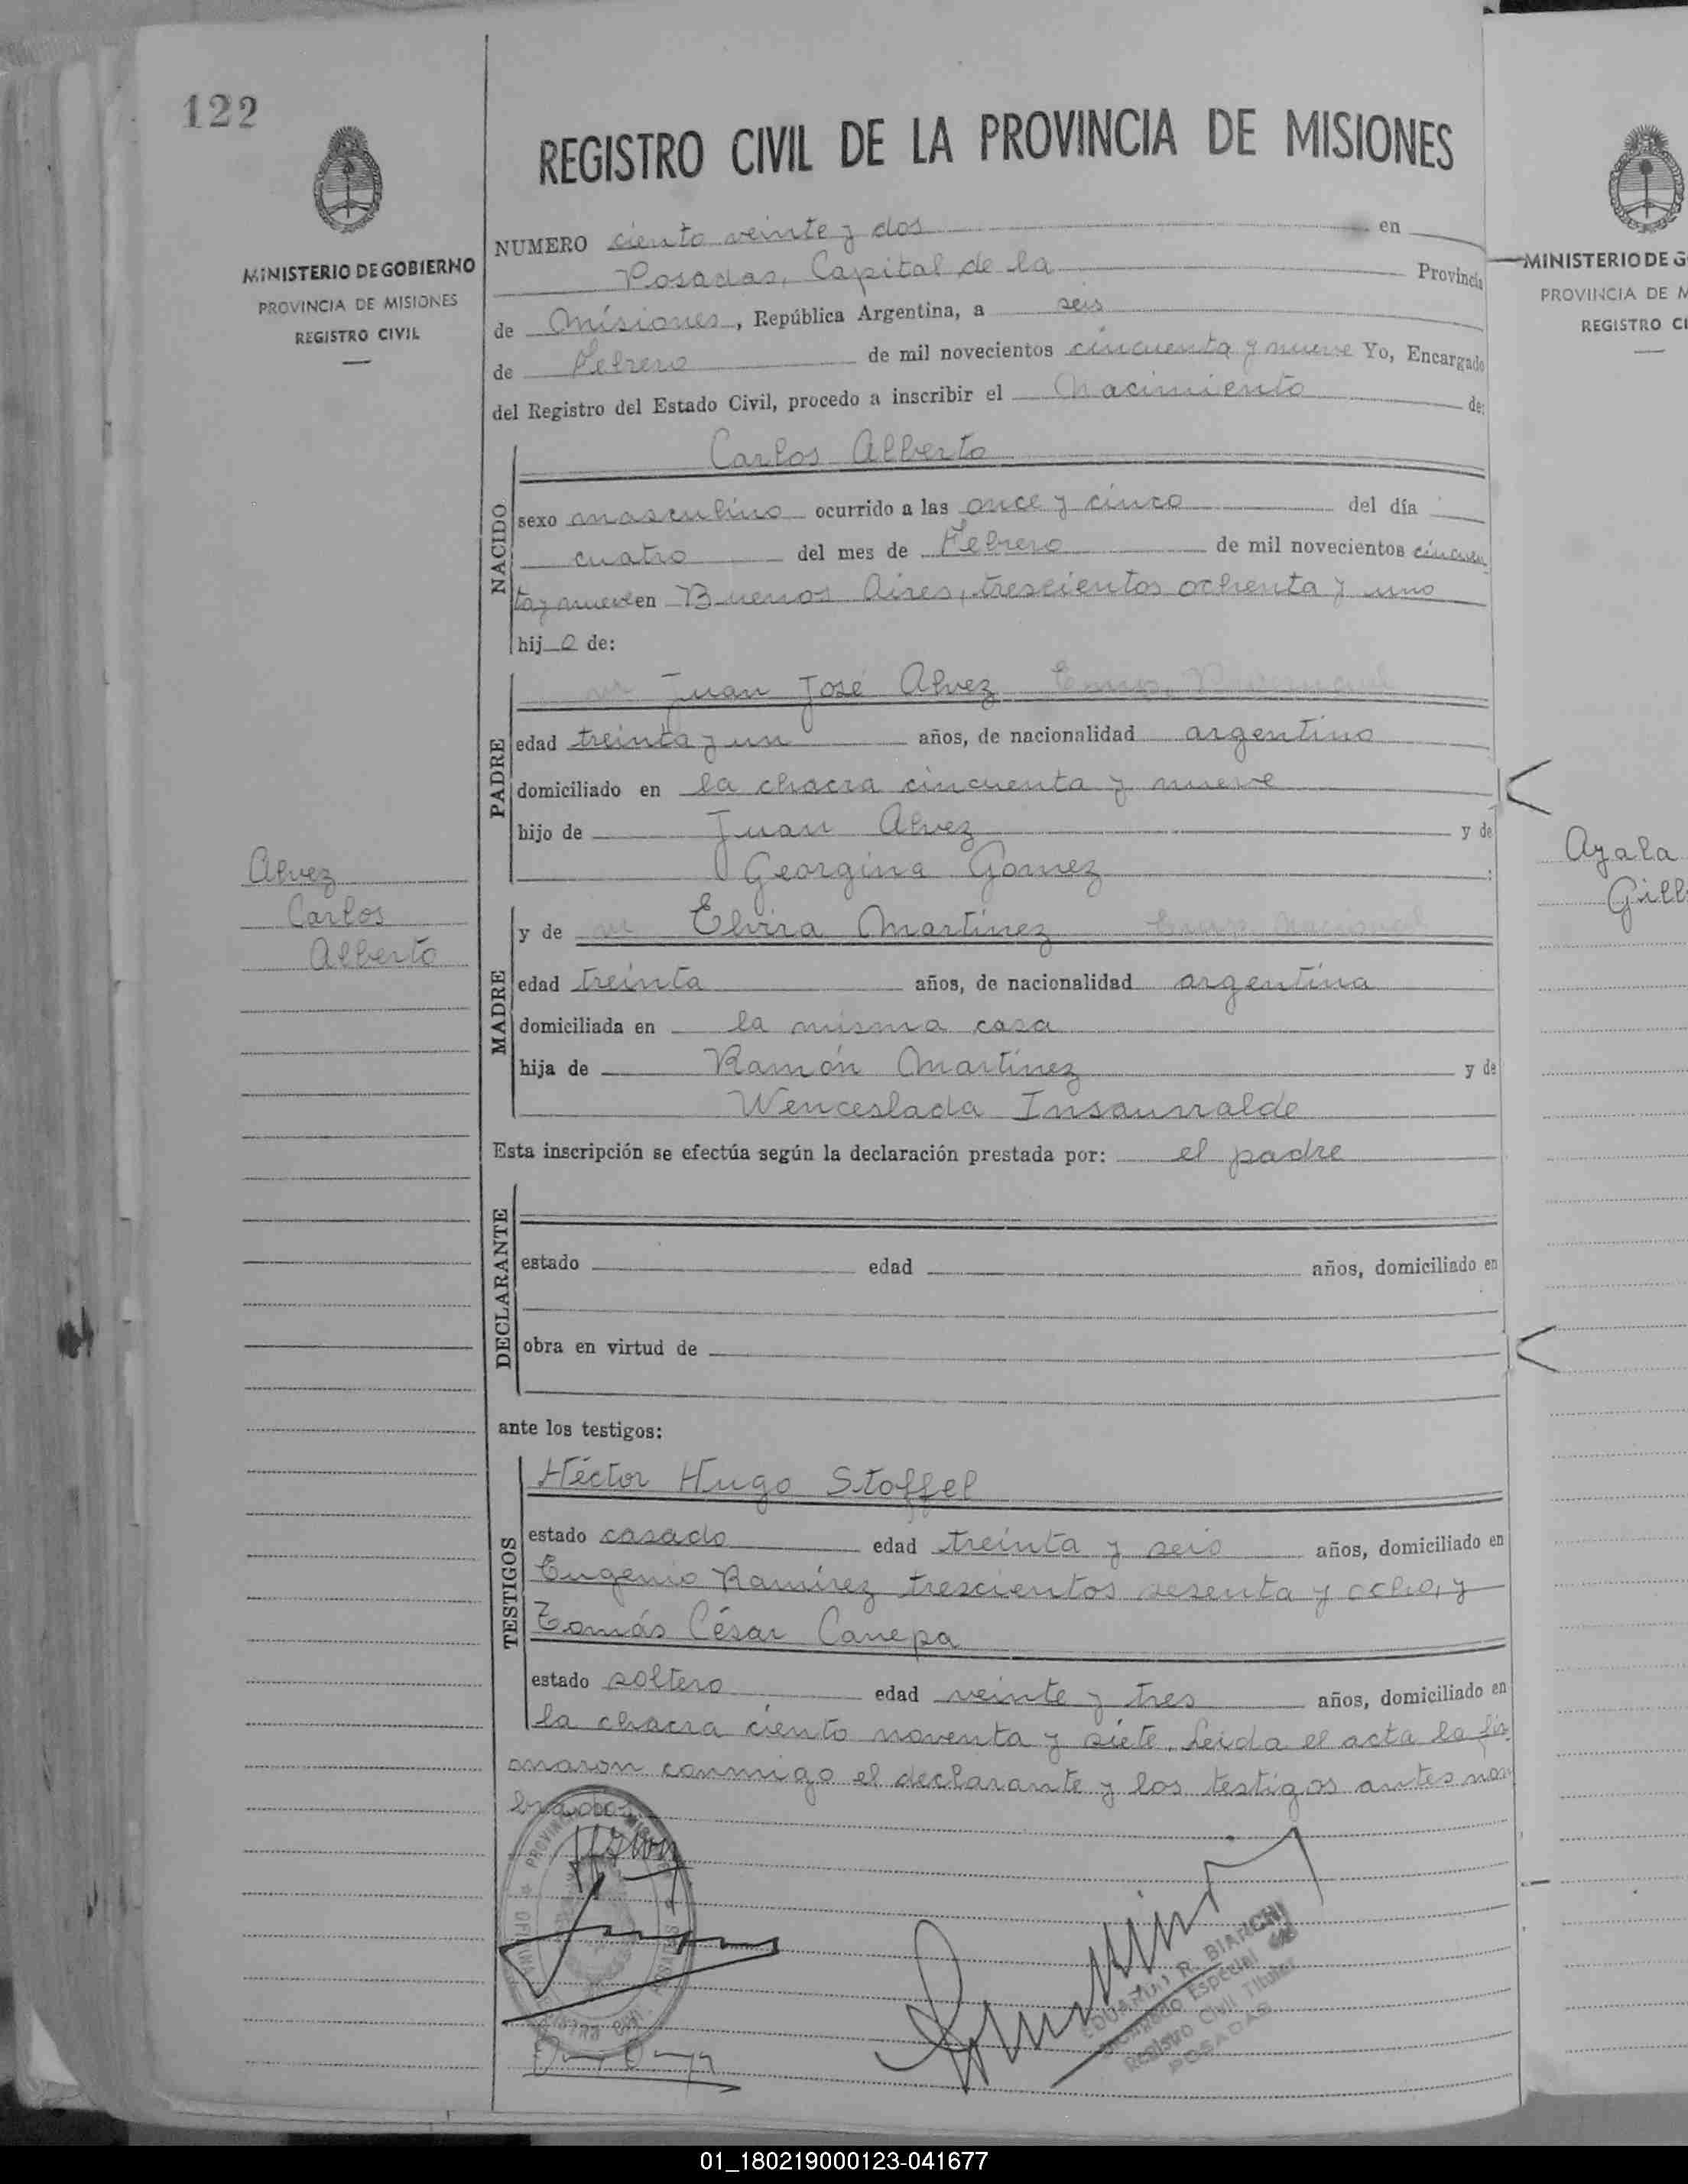 122
REGISTRO CIVIL DE LA PROVINCIA DE MISIONES
MINISTERIO DE GOBIERNO
PROVINCIA DE MISIONES
REGISTRO CIVIL
NUMERO ciento veinte y dos en
Posadas, Capital de la Provincia
de Misiones, República Argentina, a seis
de Febrero de mil novecientos cincuenta y nueve Yo, Encargado
del Registro del Estado Civil, procedo a inscribir el Nacimiento de:
Carlos Alberto
NACIDO
sexo masculino ocurrido a las once y cinco del día
cuatro del mes de Febrero de mil novecientos cincuen
ta y nueve en Buenos Aires, trescientos ochenta y uno
hijo de:
Juan José Alvez
PADRE
edad treinta y un años, de nacionalidad argentino
domiciliado en la chacra cincuenta y nueve
hijo de Juan Alvez y de
Georgina Gomez :
Alvez
Carlos
Alberto
y de Elvira Martínez
MADRE
edad treinta años, de nacionalidad argentina
domiciliada en la misma casa
hija de Ramón Martínez y de
Wenceslada Insaurralde
Esta inscripción se efectúa según la declaración prestada por: el padre
DECLARANTE
estado edad años, domiciliado en
obra en virtud de
ante los testigos:
TESTIGOS
Héctor Hugo Stoffel
estado casado edad treinta y seis años, domiciliado en
Eugenio Ramírez trescientos sesenta y ocho, y
Tomás César Canepa
estado soltero edad veinte y tres años, domiciliado en
la chacra ciento noventa y siete. Leida el acta la fir
maron conmigo el declarante y los testigos antes nom
brados
EDUARDO R. BIANCHI
Encargado Especial
Registro Civil Titular
POSADAS
MINISTERIO DE G
PROVINCIA DE M
REGISTRO CI
Ayala
Gill
01_180219000123-041677